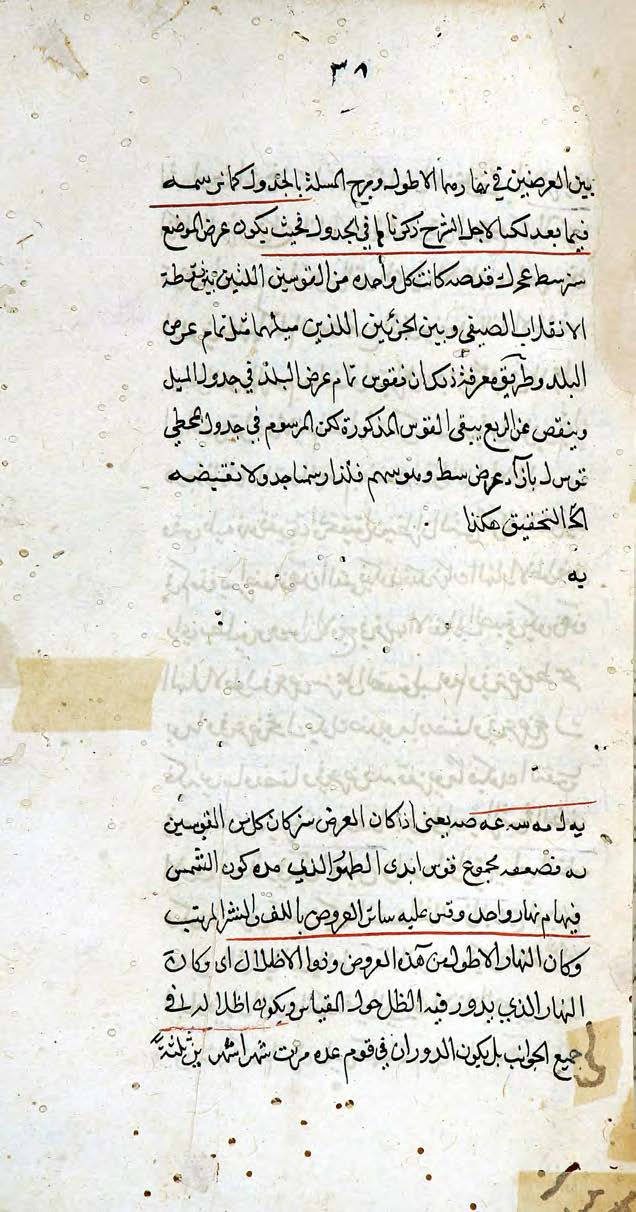 ٣٨
بين العرضين في نهارهما الاطول ويرجح المسلة بالجدول كما نرسمه
فيما بعد لكنا لاجل الشرح ذكرناها في الجدول فحيث يكون عرض الموضع
كانت كل واحده من القوسين اللتين بين نقطة
الانقلاب الصيفي وبين الجزئين اللذين ميلهما مثل تمام عرض
البلد وطريق معرفة ذلك ان نقوس تمام عرض البلد في جدول الميل
وينقص عن الربع يبقى القوس المذكورة لكن المرسوم في جدول
قوس ل بازآء عرض سط فلذا رسمنا جدولا
التحقيق هكذا
يه
يه ل مه سه عه صه يعنى اذا كان العرض سز كان كل من القوسين
يه فضعفه مجموع قوس ابدى الظهور الذي مده كون الشمس
فيها م نهار واحد وقس عليه سائر العروض باللف والنشر المرتب
وكان النهار الاطول من هذه العروض وذوا الاظلال اى وكان
النهار الذي يدور فيه الظل حول المقياس ويكون اظلاله في
جميع الجوانب بل يكون الدوران في قوم عده مرت شهرا شهرين ثلثة